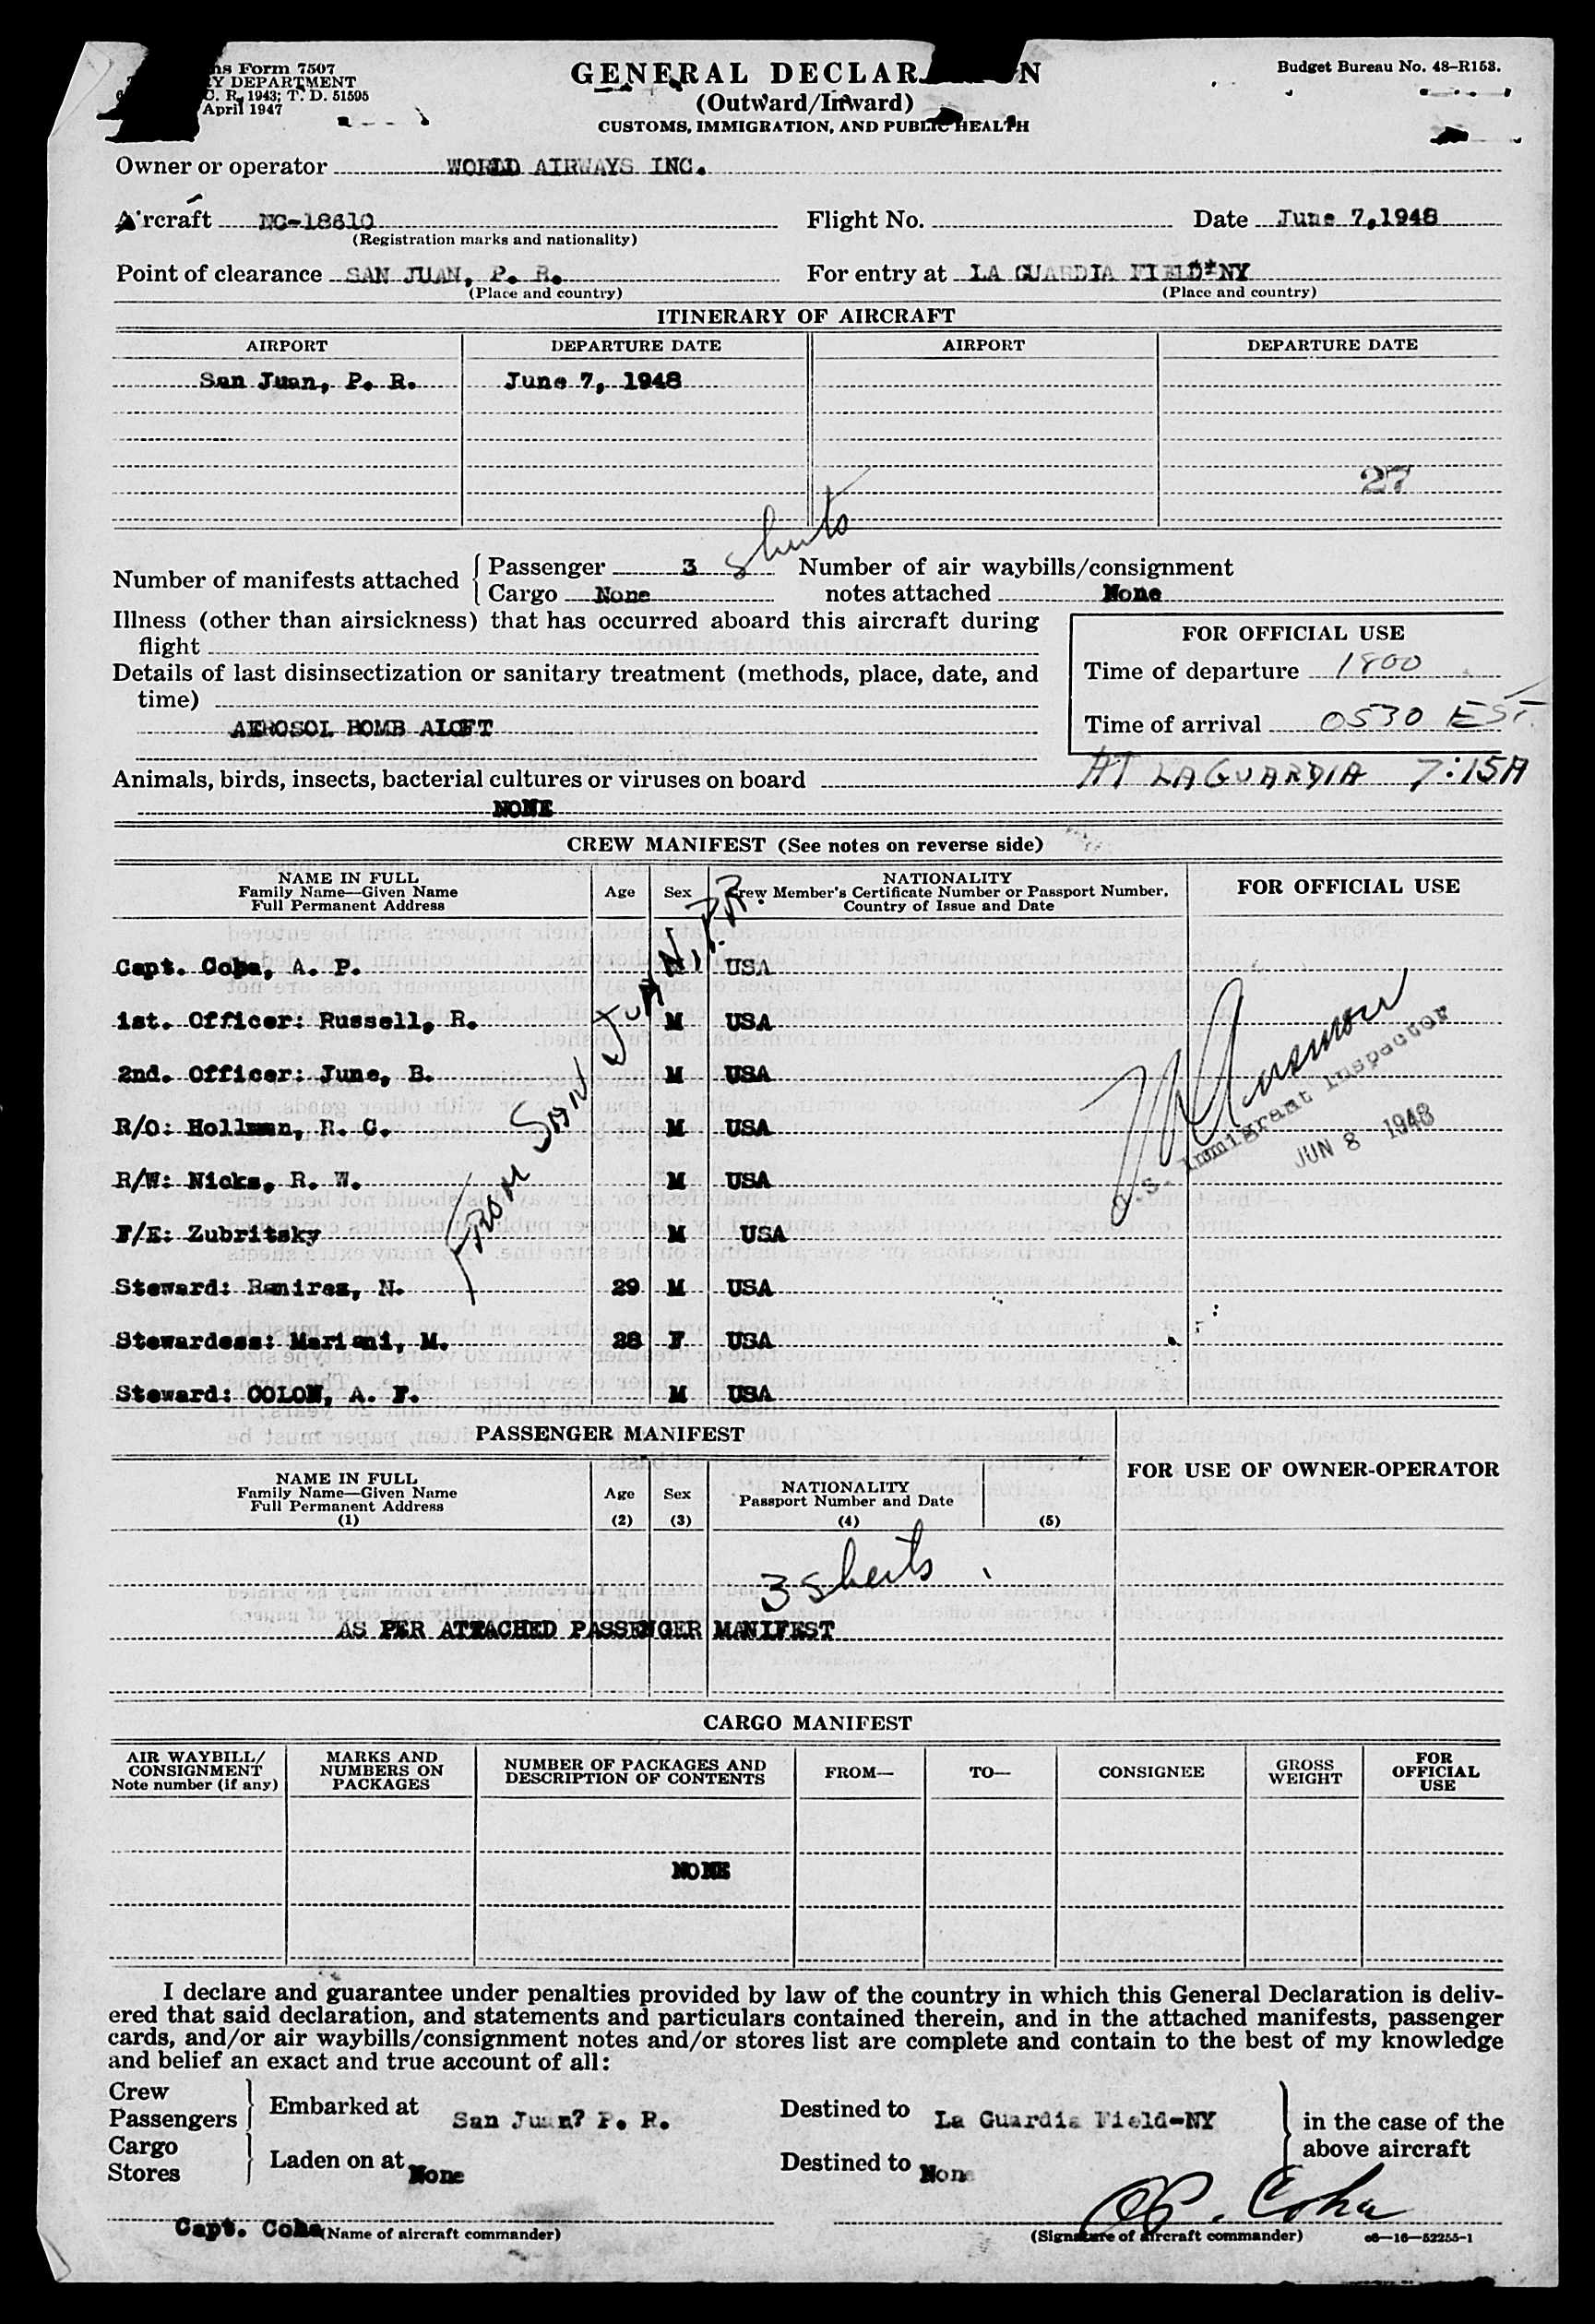 ns Form 7507
Y DEPARTMENT
C. R. 1943; T. D. 51595
April 1947
GENERAL DECLAR N
(Outward/Inward)
CUSTOMS, IMMIGRATION, AND PUBLIC HEALTH
Budget Bureau No. 48–R153.
Owner or operator WORLD AIRWAYS INC.
Aircraft NC-18610 Flight No. Date June 7, 1948
(Registration marks and nationality)
Point of clearance SAN JUAN, P. R. For entry at LA GUARDIA FIELD*NY
(Place and country) (Place and country)
ITINERARY OF AIRCRAFT
AIRPORT DEPARTURE DATE AIRPORT DEPARTURE DATE
San Juan, P. R. June 7, 1948
27
Number of manifests attached Passenger 3 sheets Number of air waybills/consignment
Cargo None notes attached None
Illness (other than airsickness) that has occurred aboard this aircraft during
flight
Details of last disinsectization or sanitary treatment (methods, place, date, and
time)
AEROSOL BOMB ALOFT
FOR OFFICIAL USE
Time of departure 1800
Time of arrival 0530 EST.
AT LAGUARDIA 7:15A
Animals, birds, insects, bacterial cultures or viruses on board
NONE
CREW MANIFEST (See notes on reverse side)
NAME IN FULL
Family Name—Given Name
Full Permanent Address
Age
Sex
NATIONALITY
Crew Member's Certificate Number or Passport Number,
Country of Issue and Date
FOR OFFICIAL USE
Capt. Coha, A. P. M USA
1st. Officer: Russell, R. M USA
2nd. Officer: June, B. M USA
R/O: Hollman, R. C. M USA
R/W: Nicks, R. W. M USA
F/E: Zubritsky M USA
Steward: Ramirez, N. 29 M USA
Stewardess: Mariani, M. 28 F USA
Steward: COLON, A. F. M USA
FROM SAN JUAN, P.R.
U.S. Immigrant Inspector
JUN 8 1948
PASSENGER MANIFEST
NAME IN FULL
Family Name—Given Name
Full Permanent Address
(1)
Age
(2)
Sex
(3)
NATIONALITY
Passport Number and Date
(4)
(5)
FOR USE OF OWNER-OPERATOR
3 sheets
AS PER ATTACHED PASSENGER MANIFEST
CARGO MANIFEST
AIR WAYBILL/
CONSIGNMENT
Note number (if any)
MARKS AND
NUMBERS ON
PACKAGES
NUMBER OF PACKAGES AND
DESCRIPTION OF CONTENTS
FROM—
TO—
CONSIGNEE
GROSS
WEIGHT
FOR
OFFICIAL
USE
NONE
I declare and guarantee under penalties provided by law of the country in which this General Declaration is deliv-
ered that said declaration, and statements and particulars contained therein, and in the attached manifests, passenger
cards, and/or air waybills/consignment notes and/or stores list are complete and contain to the best of my knowledge
and belief an exact and true account of all:
Crew
Passengers Embarked at San Juan? P. R. Destined to La Guardia Field-NY in the case of the
above aircraft
Cargo
Stores Laden on at None Destined to None
Capt. Coha (Name of aircraft commander)
A P. Coha
(Signature of aircraft commander) 06—16—52255-1